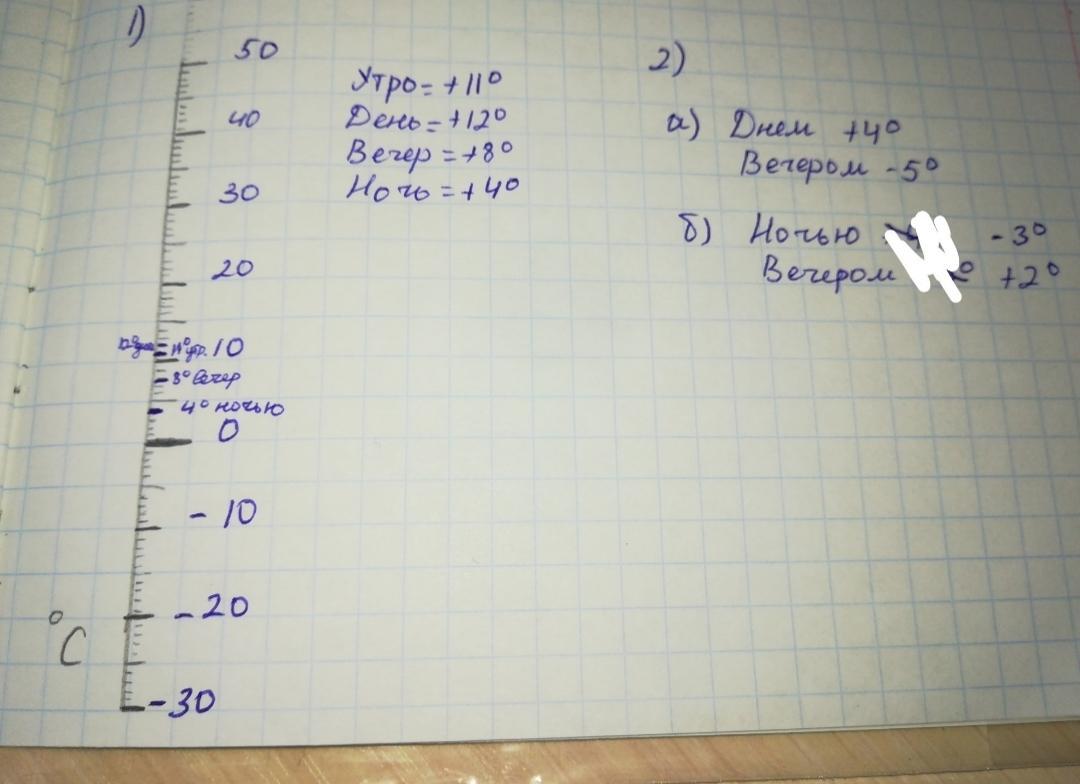 1)
50
40
30
20
11° утр. 10
8° вечер
4° ночью
0
- 10
- 20
°C
- 30
Утро = +11°
День = +12°
Вечер = +8°
Ночь = +4°
2)
а) Днем +4°
Вечером -5°
б) Ночью -3°
Вечером +2°